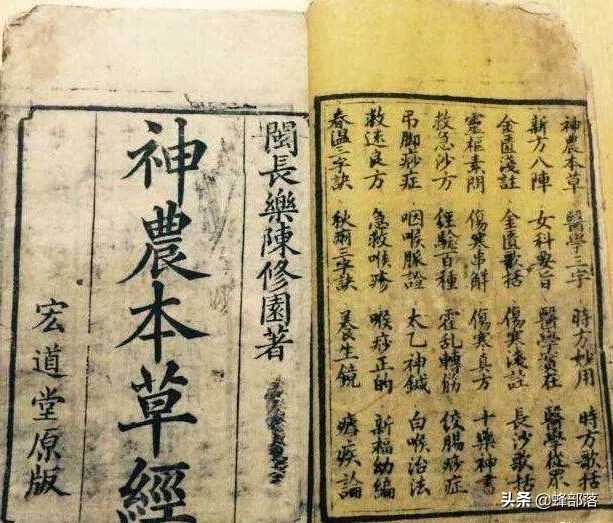 神農本草 醫學三字 時方妙用 時方歌括
新方八陣 女科要旨 醫學實在 醫學從眾
金匱淺註 金匱歌括 傷寒淺註 長沙歌括
靈樞素問 傷寒串解 傷寒真方 十藥神書
救急沙方 經驗百種 霍乱轉筋 絞腸痧症
吊脚痧症 咽喉脈證 太乙神鍼 白喉治法
救迷良方 急救喉疹 喉痧正的 新福幼編
春温三字訣 秋痢三字訣 養生鏡 瘧疾論
閩長樂陳修園著
神農本草經
宏道堂原版
头条 @蜂部落